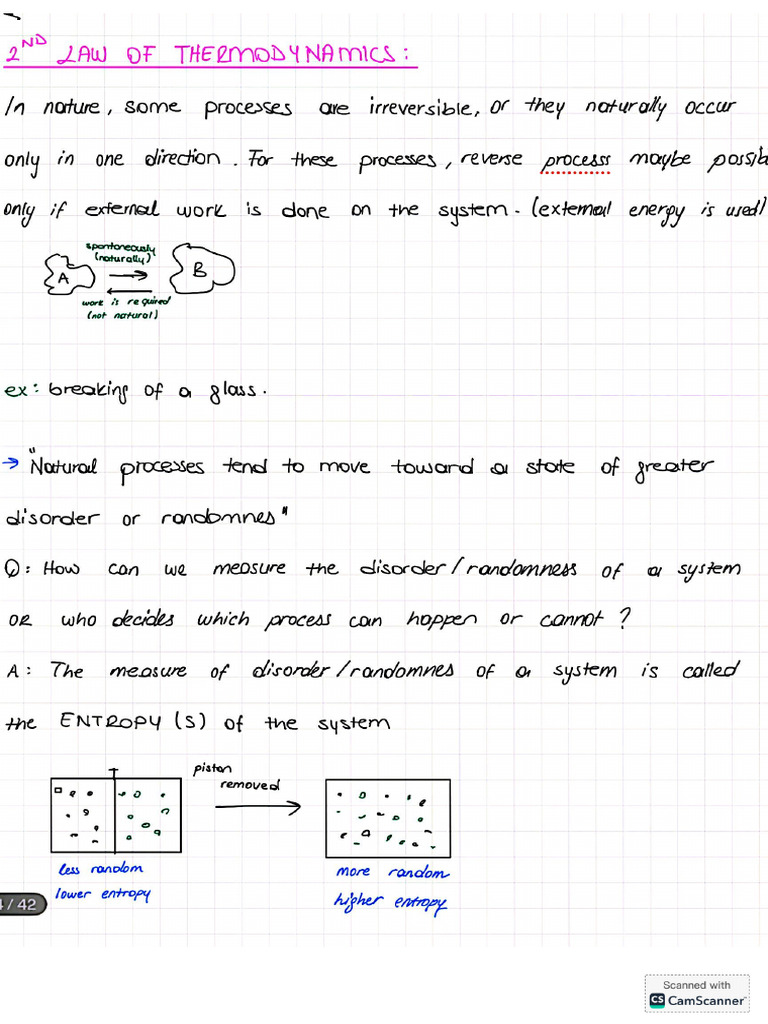 2ND LAW OF THERMODYNAMICS:
In nature, some processes are irreversible, or they naturally occur
only in one direction. For these processes, reverse processs maybe possib
only if external work is done on the system. (external energy is used)
spontoneously
(naturally)
A
B
work is required
(not natural)
ex: breaking of a glass.
→ "Natural processes tend to move toward a state of greater
disorder or randomnes"
Q: How can we measure the disorder/randomness of a system
OR who decides which process can happen or cannot?
A: The measure of disorder/randomnes of a system is called
the ENTROPY (S) of the system
piston
removed
less random
lower entropy
more random
higher entropy
/ 42
Scanned with
CS CamScanner